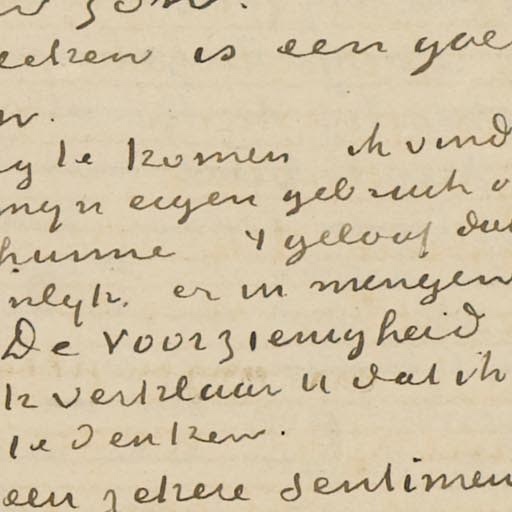 zyn.
eeken is een goe
n.
y te komen ik vind
myn eigen gebruik
hunne 't geloof dat
nlyk. er in mengen
De voorzienigheid
k verklaar u dat ik
te denken.
een zekere sentimen